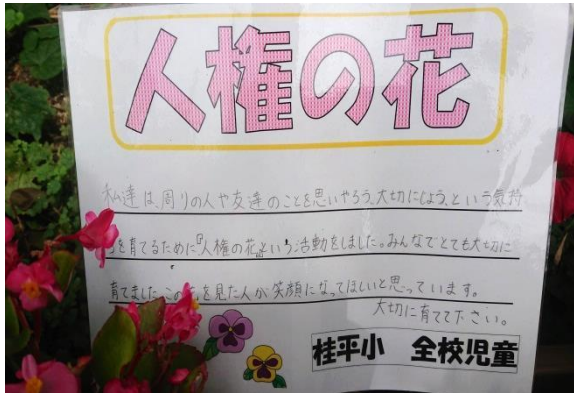 人権の花
私達は、周りの人や友達のことを思いやろう、大切にしよう、という気持
を育てるために『人権の花』という活動をしました。みんなでとても大切に
育てました。この を見た人が笑顔になってほしいと思っています。
大切に育てて下さい。
桂平小 全校児童